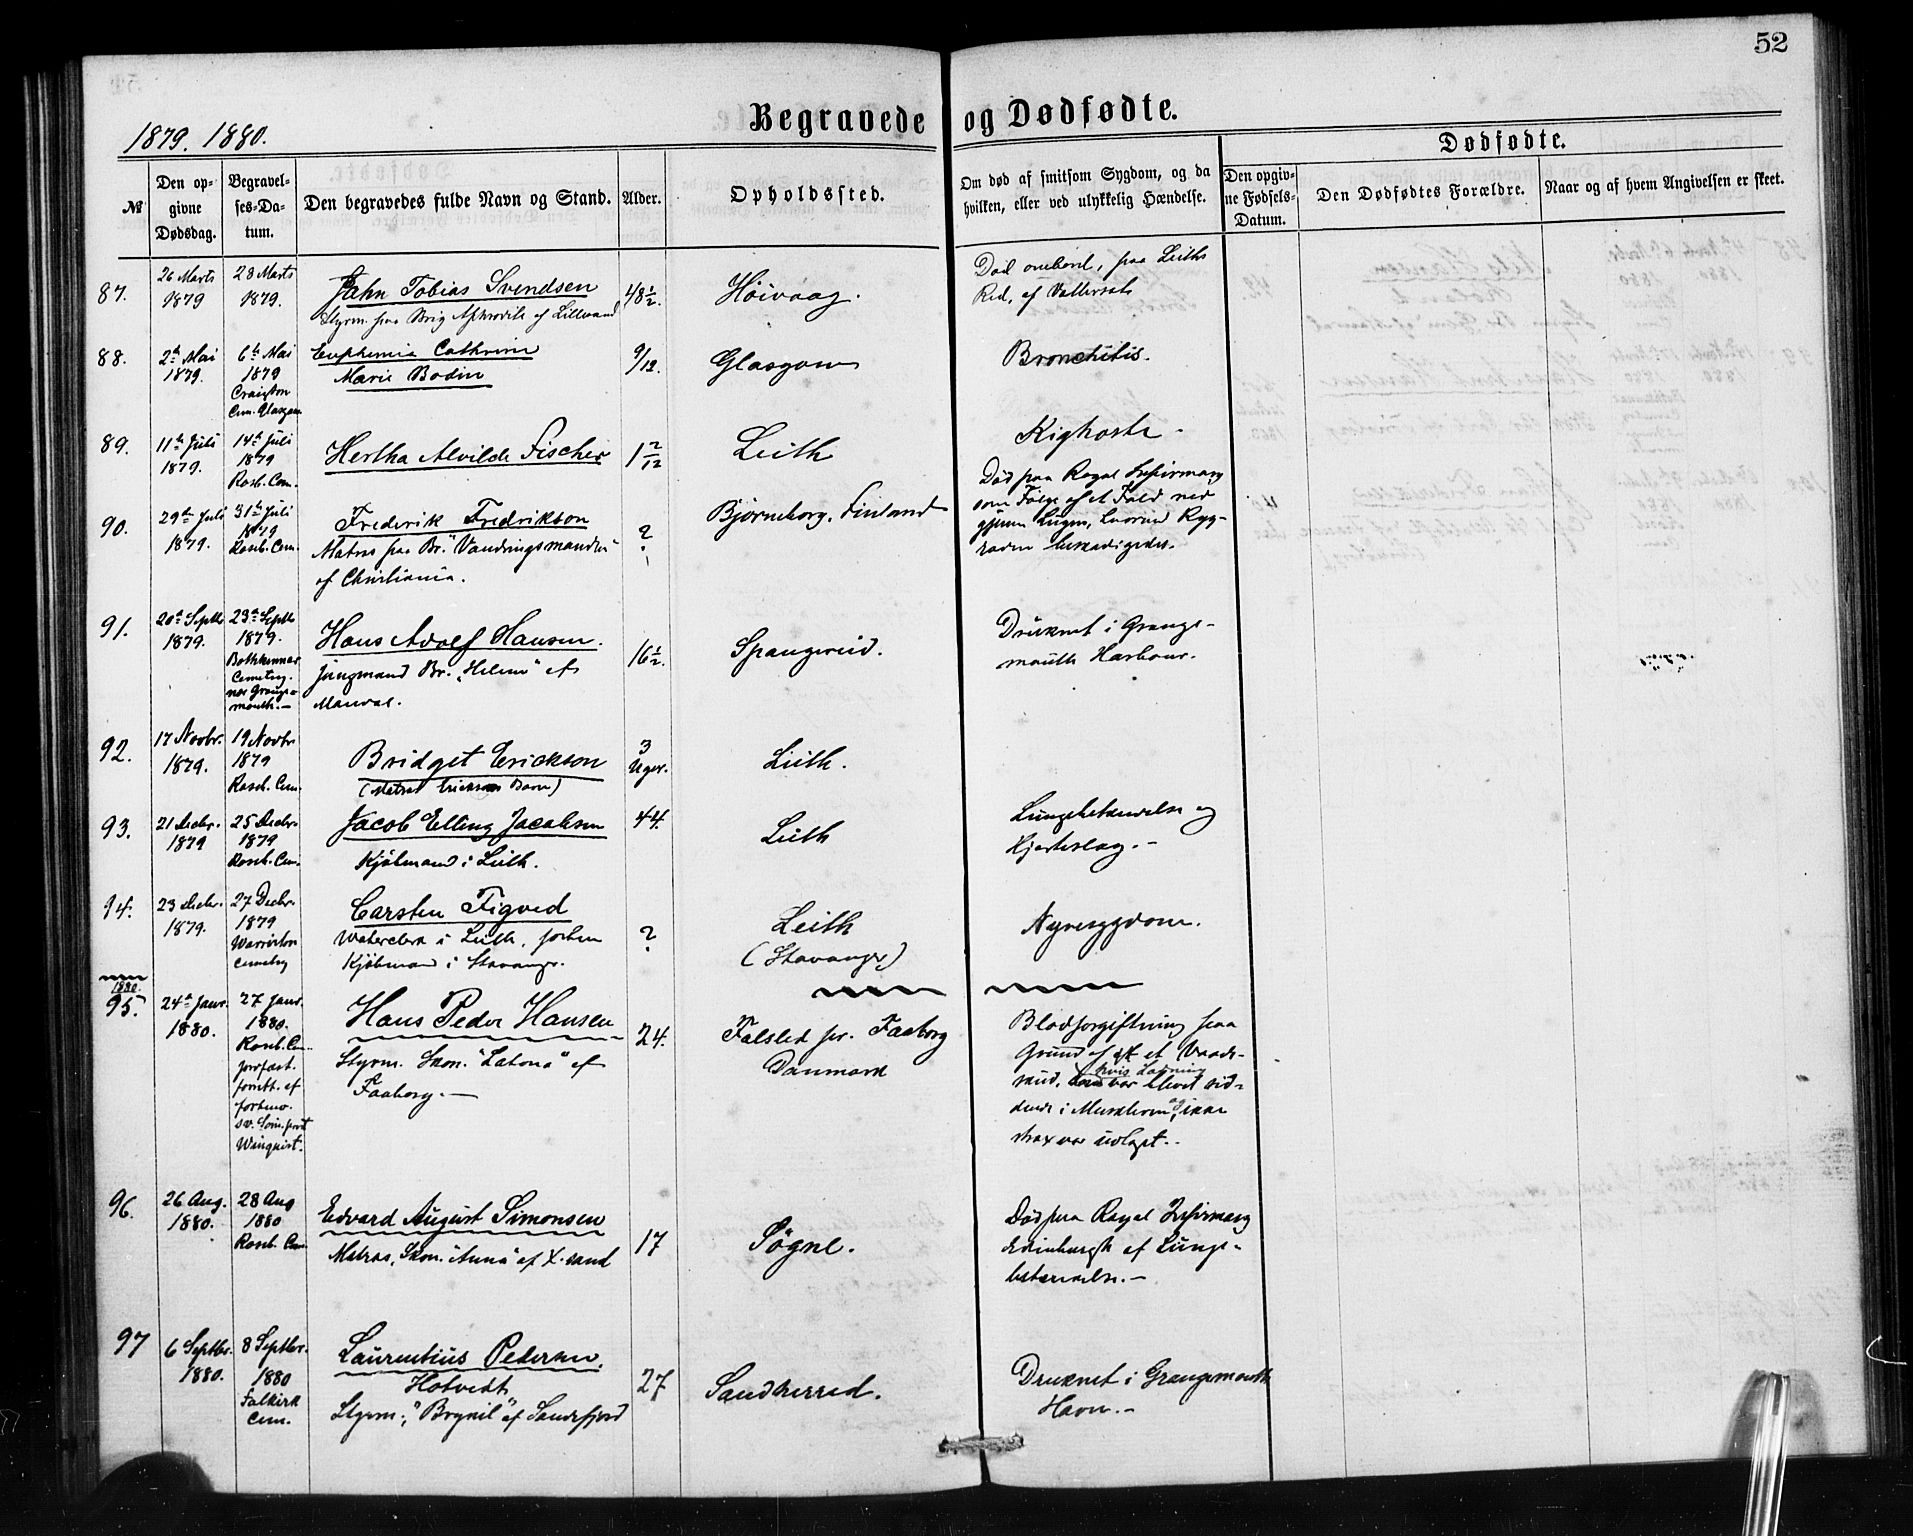 52
Begravede og Dødfødte.
1879. 1880.
Dødfødte.
№
Den op-
givne
Dødsdag.
Begravel-
ses-Da-
tum.
Den begravedes fulde Navn og Stand.
Alder.
Opholdssted.
Om død af smitsom Sygdom, og da
hvilken, eller ved ulykkelig Hændelse.
Den opgiv-
ne Fødsels-
Datum.
Den Dødfødtes Forældre.
Naar og af hvem Angivelsen er skeet.
87.
26 Marts
1879
28 Marts
1879.
Jahn Tobias Svendsen
Styrm. paa Brig Aphrodite af Lillesand
48½.
Höivaag.
Död ombord, paa Leiths
Red, af Vattersot
88.
2den Mai
1879.
6te Mai
1879
Craigton
Cem. Glasgow
Euphemia Cathrine
Marie Bodin
9/12.
Glasgow
Bronchitis.
89.
11te Juli
1879.
14de Juli
1879
Roseb. Cem.
Hertha Alvilde Fischer
1 2/12
Leith
Kighoste -
90.
29de Juli
1879.
31te Juli
1879
Roseb. Cem.
Frederik Fredrikson
Matros paa Br. "Vandringsmanden"
af Christiania.
?
Björneborg, Finland
Död paa Royal Infirmary
som Fölge af et Fald ned
gjennem Lugen, hvorved Ryg-
raden beskadigedes.
91.
20de Septbr
1879.
23de Septbr
1879.
Bothkennar
Cemetery.
nær Grange-
mouth. -
Hans Adolf Hansen.
Jungmand Br. "Helene" af
Mandal.
16½.
Spangereid.
Druknet i Grange-
mouth Harbour.
92.
17 Novbr.
1879.
19 Novbr
1879
Roseb. Cem.
Bridget Erickson
(Matros Ericksons Barn)
3
Uger.
Leith.
93.
21 Decbr.
1879
25 Decbr.
1879
Roseb. Cem.
Jacob Elling Jacobsen
Kjöbmand i Leith.
44.
Leith
Lungebetændelse og
Hjerteslag. -
94.
23 Decbr.
1879.
27 Decbr.
1879
Warriston
Cemetery
Carsten Figved
Waterclerk i Leith, forhen
Kjöbmand i Stavanger.
?
Leith
(Stavanger)
Nyresygdom.
1880.
95.
24de Janr.
1880.
27 Janr.
1880.
Roseb. Cem.
forrett. af
Winquist.
Hans Peder Hansen
Styrm. Skon. "Latona" af
Faaborg. -
24.
Falsled pr. Faaborg
Danmark
Blodforgiftning paa
Grund af et Vaade-
skud, hvis Ladning
var blevet sid-
dende i Musklerne, og ikke
strax var udtaget.
96.
26 Aug.
1880.
28 Aug
1880
Roseb. Cem.
Edvard August Simonsen
Matros, Skon. "Anna" af X.sand
17
Sögne.
Död paa Royal Infirmary
Edinburgh af Lunge-
betændelse. -
97
6 Septbr.
1880.
8 Septbr.
1880
Falkirk
Cem.
Laurentius Pedersen.
Hotvedt
Styrm., "Brynil" af Sandefjord
27
Sandherred.
Druknet i Grangemouth
Havn. -